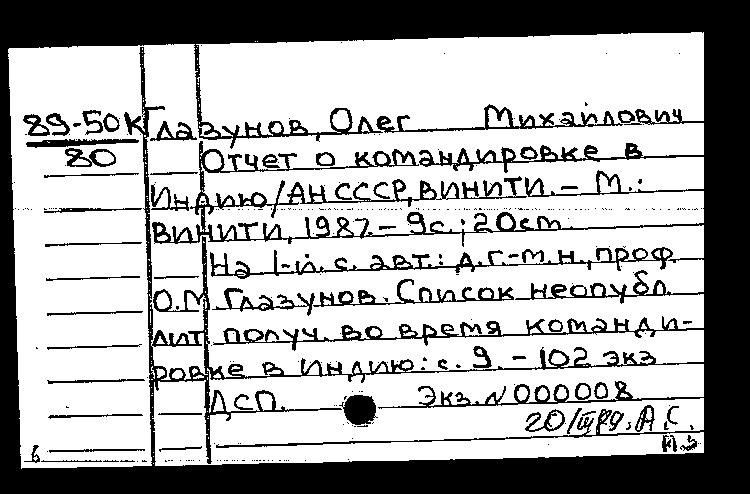 89-50К Глазунов, Олег Михайлович
80 Отчет о командировке в
Индию/АН СССР, ВИНИТИ. – М.:
ВИНИТИ, 1987. – 9с.; 20см.
На 1-й. с. авт.: д.г.-м.н., проф.
О.М. Глазунов. Список неопубл.
лит. получ. во время команди-
ровке в Индию: с. 9. – 102 экз
ДСП. Экз. N 000008
20/III89. А.С.
6